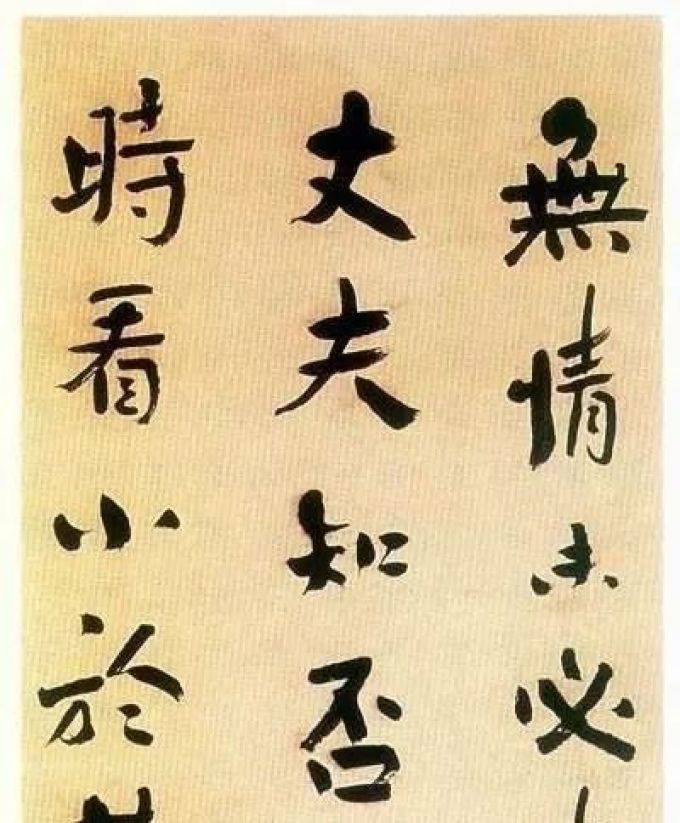 無情未必
丈夫知否
時看小於